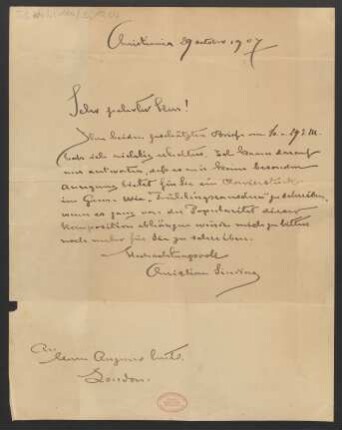 Christiania 29 october 1907
Sehr geehrter Herr!
Ihre beiden geschätzten Briefe vom 10 - 19 d. M.
hab ich richtig erhalten. Ich kann darauf
nur antworten, daß es mir keine besondere
Anregung bietet für Sie ein Clavierstück
im Genre wie Frühlingsrauschen zu schreiben,
wenn es ganz von der Popularität dieser
Komposition abhängen wird mich zu bitten
noch mehr für Sie zu schreiben.
Hochachtungsvoll
Christian Sinding
An
Herrn Augener
London.